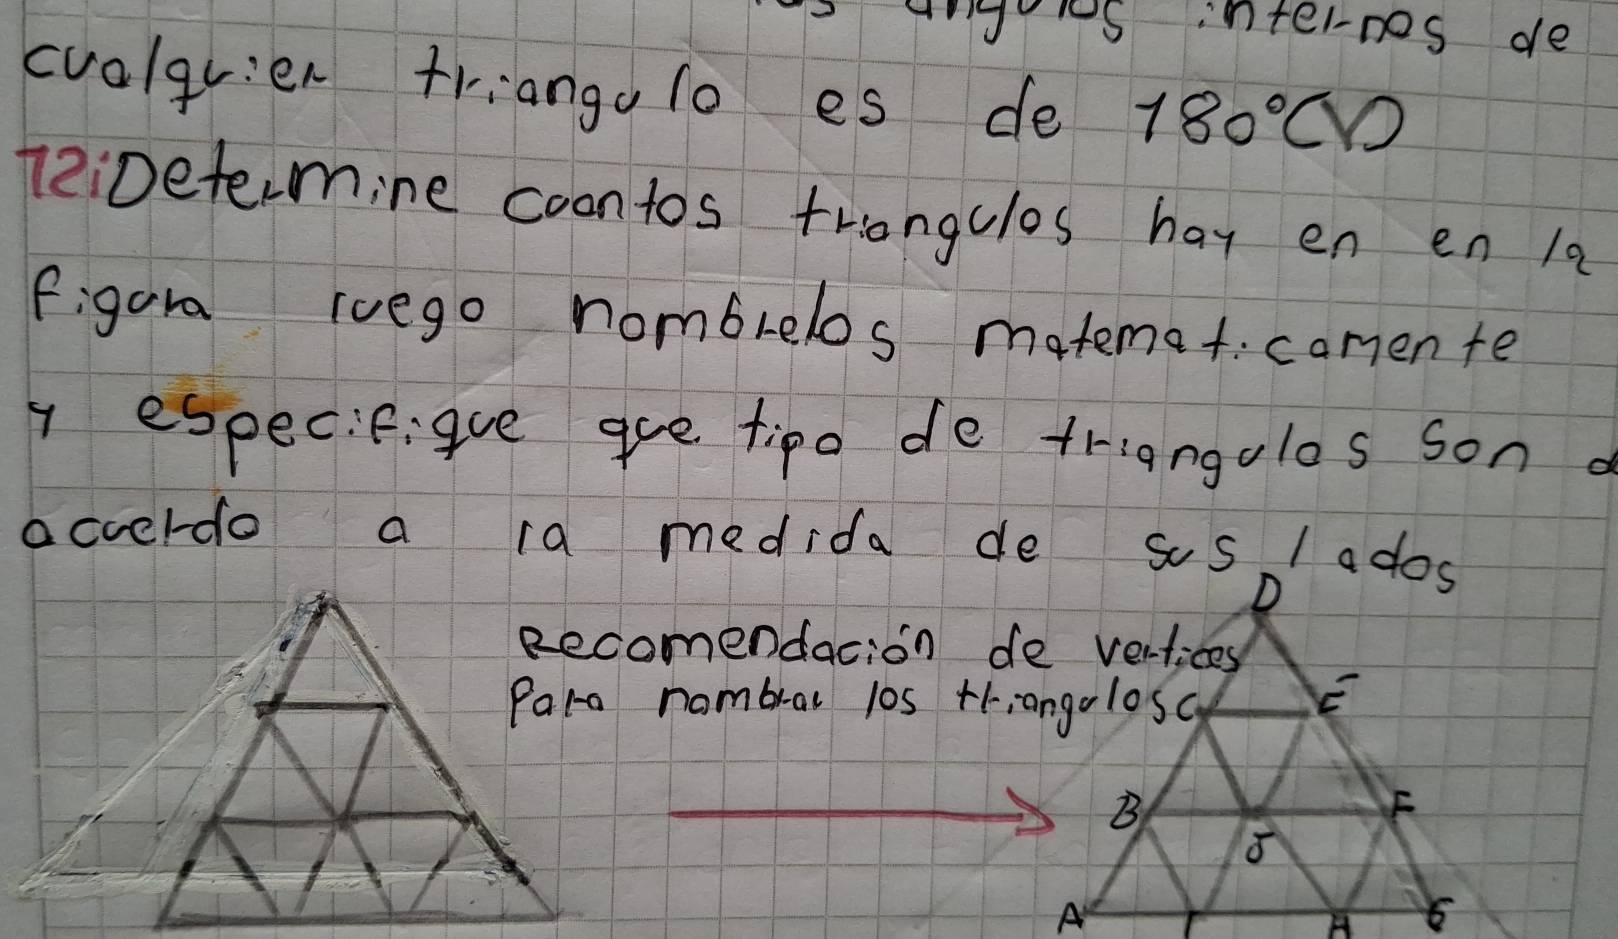 angulos internos de
cualquier triangulo es de 180°(V)
12:Determine coontos triangulos hay en en la
figura luego nombrelos matematicamente
y especifique que tipo de triangulos son d
acuerdo a la medida de sus lados
Recomendación de vertices
Para nombrar los triangulos
D
C
E
B
F
J
A
I
H
G